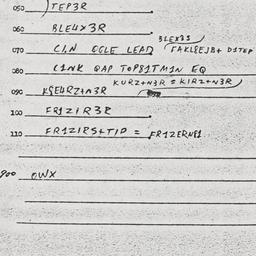 050 TEP3R
060 BLE4X3R
BLEX3S
070 CIN EGLE LEAD FAKLSEJB+ DITEP
080 CINK QAP TOP81TM1N EQ
KURZ+N3R = KIRZ+N3R
090 KSE4RZ+N3R
100 FR1ZIR3R
110 FR1ZIRS4TIP = FR1ZERNE1
900 OWX